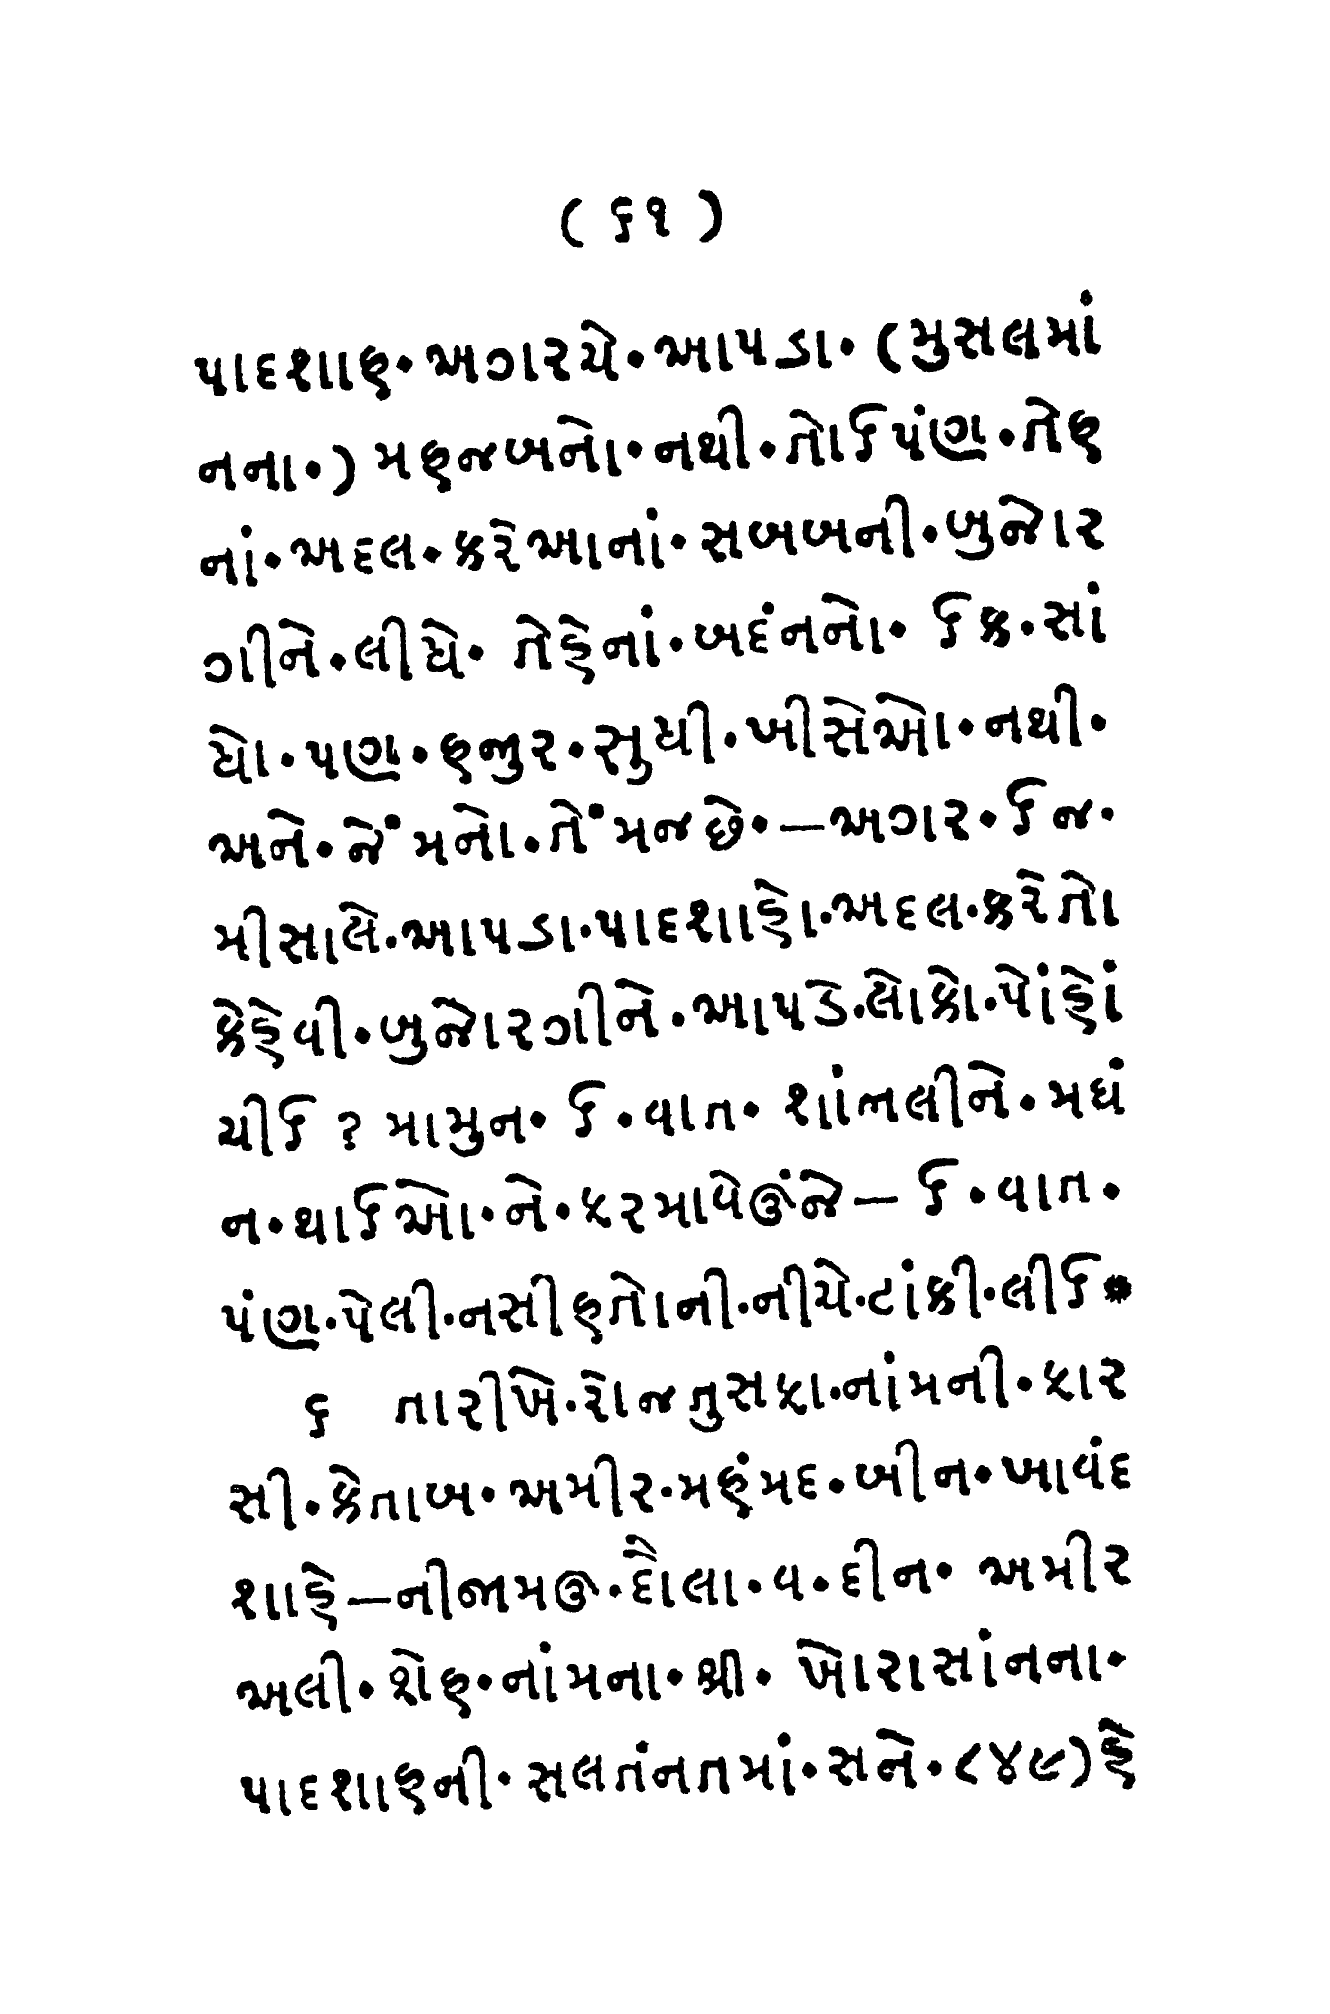 ( ૬૧ )
પાદશાહ• અગરચે• આપડા• (મુસલમાં
નના•) મહજબનો• નથી• તોઈપંણ• તેહ
નાં• અદલ• કરેઆનાં• સબબની• બુજોર
ગીને• લીધે• તેહેનાં• બદંનનો• ઈક• સાં
ધો• પણ• હજુર• સુધી• ખીસેઓ• નથી•
અને• જેંમનો• તેંમજછે• —અગર• ઈજ•
મીસાલે• આપડા• પાદશાહો• અદલ• કરેતો
કેહેવી• બુજોરગીને• આપડે• લોકો• પોંહોં
ચીઈ ? મામુન• ઈ• વાત• શાંભલીને• મધં
ન• થાઈઓ• ને• ફરમાવેઊંજે— ઈ• વાત•
પંણ• પેલી• નસીહતોની• નીચે• ટાંકી• લીઈ*
૬ તારીખે• રોજતુસફા• નાંમની• ફાર
સી• કેતાબ• અમીર• મહંમદ• બીન• ખાવંદ
શાહે—નીજામઊ• દૌલા• વ• દીન• અમીર
અલી• શેહ• નાંમના• શ્રી• ખોરાસાંનના•
પાદશાહની• સલતંનતમાં• સને• ૮૪૯)હે